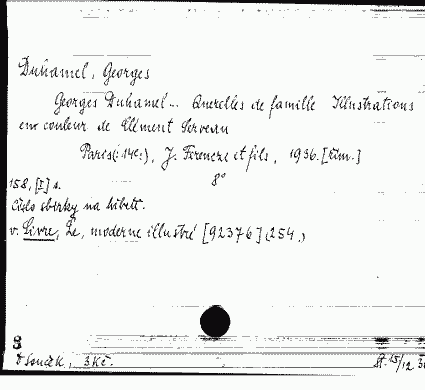 Duhamel, Georges
Georges Duhamel... Querelles de famille Illustrations
en couleur de Clément Serveau
Paris(:14e:), J. Ferenczi et fils, 1936. [tim.]
8°
158, [I] s.
Číslo sbírky na hřbetě.
v. Livre, Le, moderne illustré [92376] (254.)
Souček, 3 Kč.
15/12